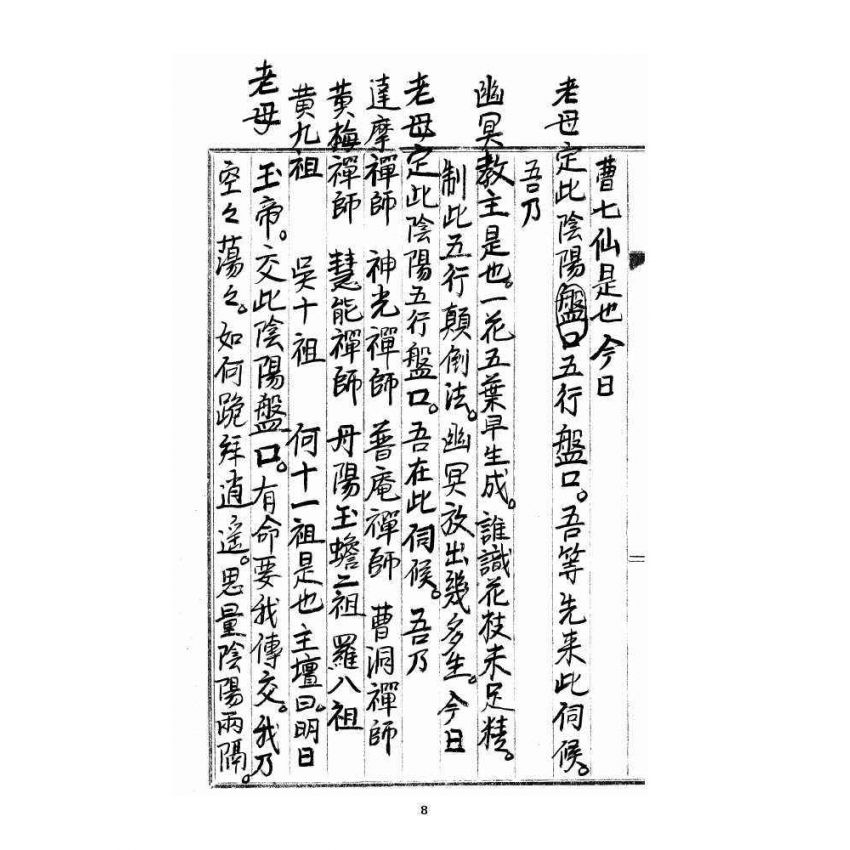 曹七仙是也今日
老母定此陰陽盤口五行盤口。吾等先来此伺候。
吾乃
幽冥教主是也。一花五葉早生成。誰識花枝未足精。
制此五行顛倒法。幽冥放出幾多生。今日
老母定此陰陽五行盤口。吾在此伺候。吾乃
達摩禪師 神光禪師 普庵禪師 曹洞禪師
黄梅禪師 慧能禪師 丹陽玉蟾二祖 羅八祖
黄九祖 吳十祖 何十一祖是也主壇曰。明日
老母
玉帝。交此陰陽盤口。有命要我傳交。我乃
空々蕩々。如何跪拜逍遥。思量陰陽兩隔。
8